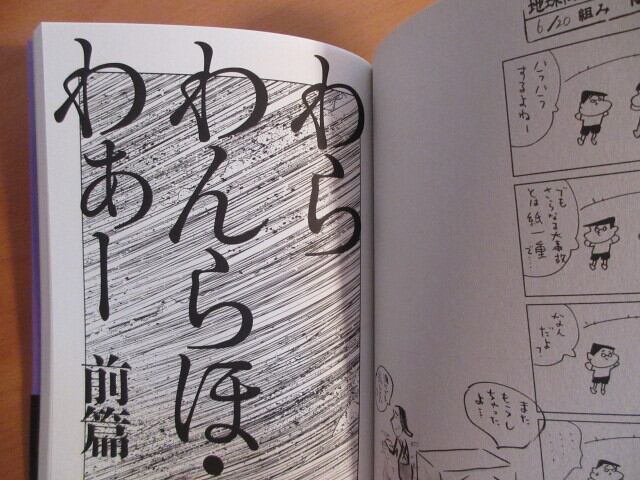 6/20 組み
ハラハラ
するよねー
でも
さらなる大事故
とは紙一重
で…
なん
だよ
また
もうし
ちゃった
よ…
わら
わんらほ・
わあー
前篇